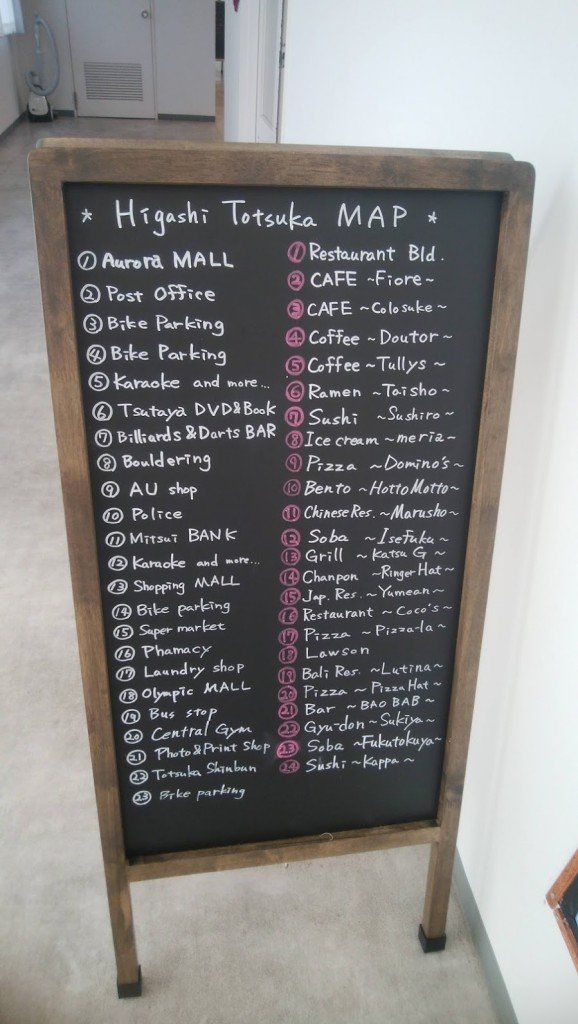 * Higashi Totsuka MAP *
① Aurora MALL
② Post Office
③ Bike Parking
④ Bike Parking
⑤ Karaoke and more...
⑥ Tsutaya DVD&Book
⑦ Billiards & Darts BAR
⑧ Bouldering
⑨ AU shop
⑩ Police
⑪ Mitsui BANK
⑫ Karaoke and more...
⑬ Shopping MALL
⑭ Bike parking
⑮ Super market
⑯ Phamacy
⑰ Laundry shop
⑱ Olympic MALL
⑲ Bus stop
⑳ Central Gym
㉑ Photo & Print Shop
㉒ Totsuka Shinbun
㉓ Bike parking
① Restaurant Bld.
② CAFE ~Fiore~
③ CAFE ~Colosuke~
④ Coffee ~Doutor~
⑤ Coffee ~Tullys~
⑥ Ramen ~Taisho~
⑦ Sushi ~Sushiro~
⑧ Ice cream ~meria~
⑨ Pizza ~Domino's~
⑩ Bento ~HottoMotto~
⑪ Chinese Res. ~Marusho~
⑫ Soba ~Isefuku~
⑬ Grill ~Katsu G~
⑭ Chanpon ~Ringer Hat~
⑮ Jap. Res. ~Yumean~
⑯ Restaurant ~Coco's~
⑰ Pizza ~Pizza-la~
⑱ Lawson
⑲ Bali Res. ~Lutina~
⑳ Pizza ~Pizza Hat~
㉑ Bar ~BAO BAB~
㉒ Gyu-don ~Sukiya~
㉓ Soba ~Fukutokuya~
㉔ Sushi ~Kappa~